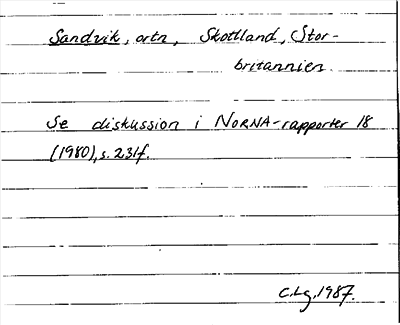 Sandvik, ortn, Skottland, Stor-
britannien
Se diskussion i NORNA-rapporter 18
(1980), s. 231f.
C.Lg. 1987.